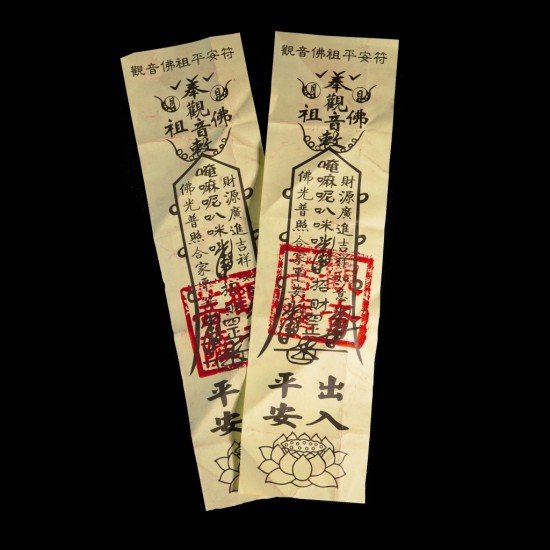 觀音佛祖平安符
奉觀音敕
佛
祖
財源廣進吉祥
唵嘛呢叭咪吽
招財
佛光普照合家平
平安
觀音佛祖平安符
奉觀音敕
佛
祖
財源廣進吉祥如意
唵嘛呢叭咪吽
招財
佛光普照合家平安
出入
平安